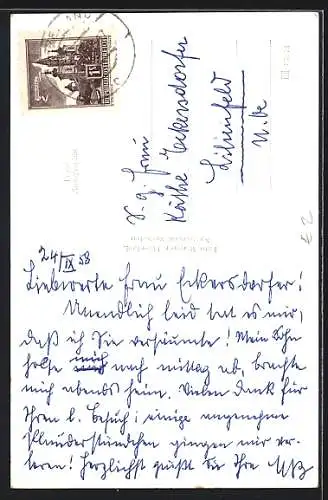 S. g. Frau
Käthe Eckersdorfer
Lilienfeld
N. Oe
24/IX 58
Liebwerte Frau Eckersdorfer!
Unendlich leid tat es mir,
daß ich Sie versäumte! Mein Sohn
holte mich nach mittag ab, brachte
mich abends heim. Vielen Dank für
Ihren l. Besuch; einige angenehme
Plauderstündchen gingen mir ver-
loren! Herzlichst grüßt Sie Ihre